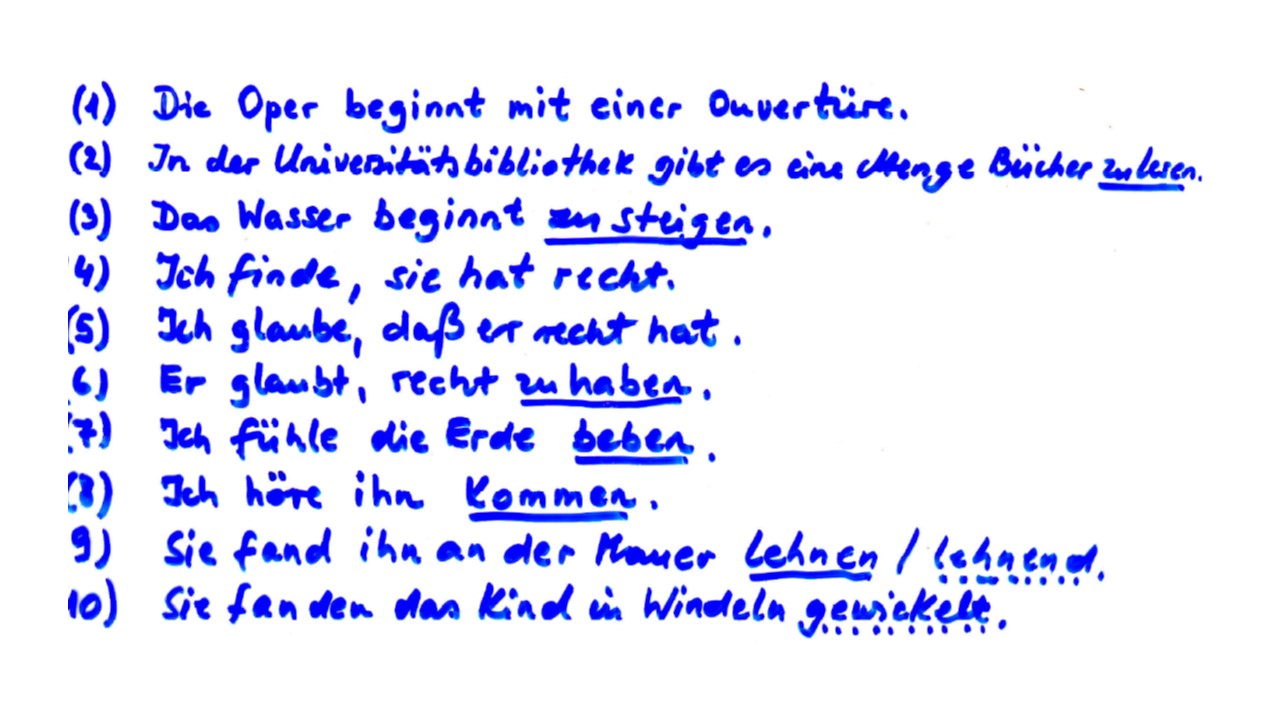 (1) Die Oper beginnt mit einer Ouvertüre.
(2) In der Universitätsbibliothek gibt es eine Menge Bücher zu lesen.
(3) Das Wasser beginnt zu steigen.
4) Ich finde, sie hat recht.
(5) Ich glaube, daß er recht hat.
6) Er glaubt, recht zu haben.
(7) Ich fühle die Erde beben.
(8) Ich höre ihn kommen.
9) Sie fand ihn an der Mauer lehnen / lehnend.
10) Sie fanden das Kind in Windeln gewickelt.